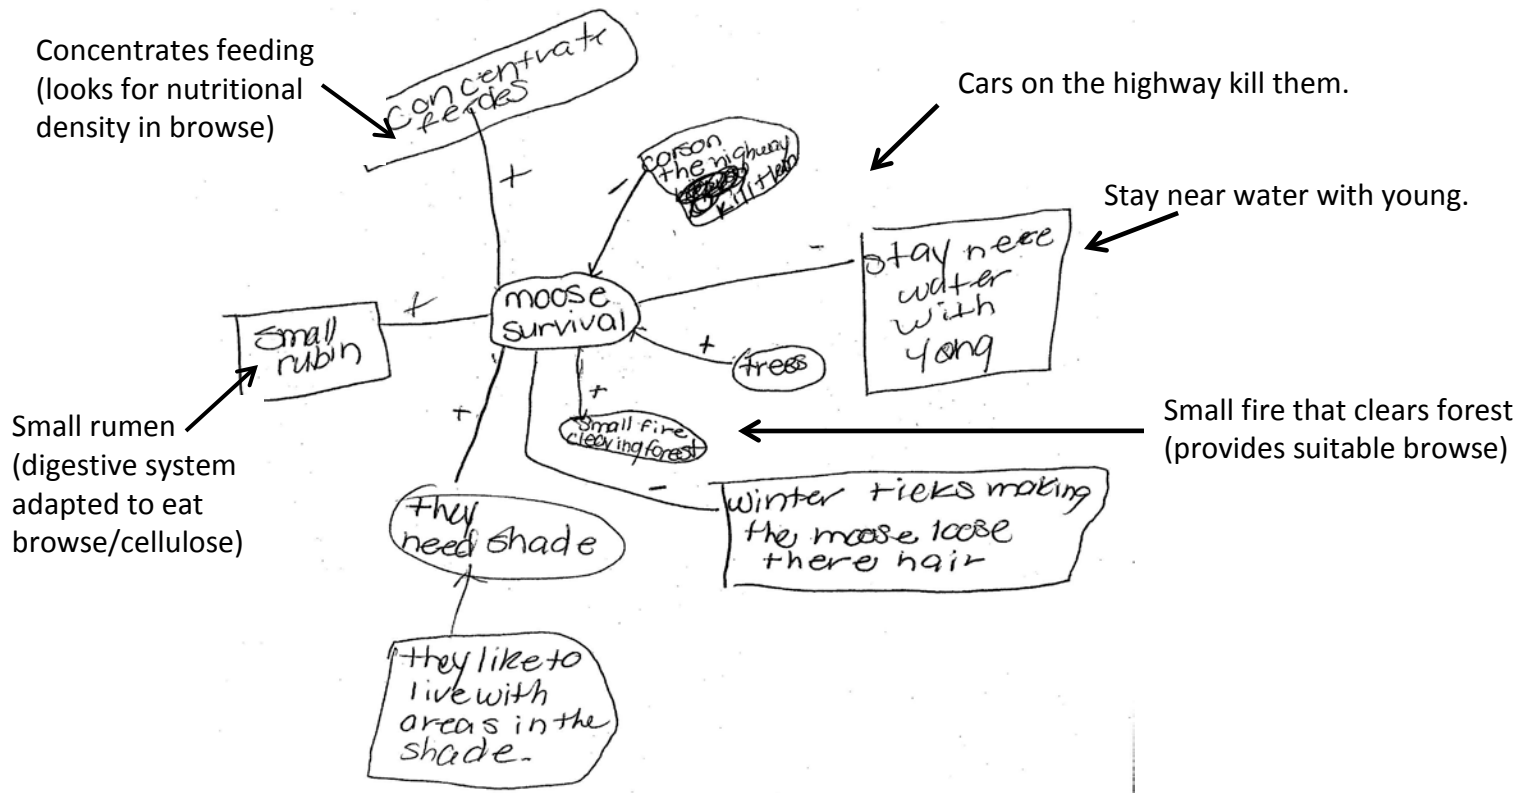 Concentrates feeding
(looks for nutritional
density in browse)
concentrate
feedes
+
Cars on the highway kill them.
carson
the highway
kill them
-
Stay near water with young.
stay nere
water
with
yong
-
moose
survival
+
small
rubin
+
trees
Small rumen
(digestive system
adapted to eat
browse/cellulose)
+
+
small fire
clearing forest
Small fire that clears forest
(provides suitable browse)
-
winter ticks making
the moose loose
there hair
they
need shade
they like to
live with
areas in the
shade.